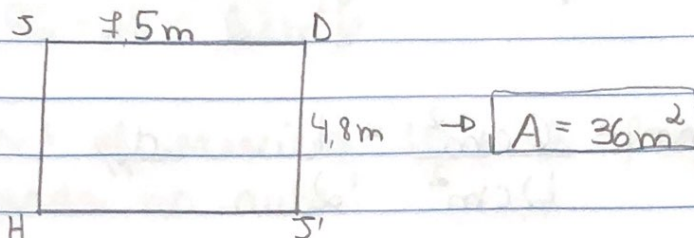 J 7,5m D
4,8m → A = 36m²
H J'